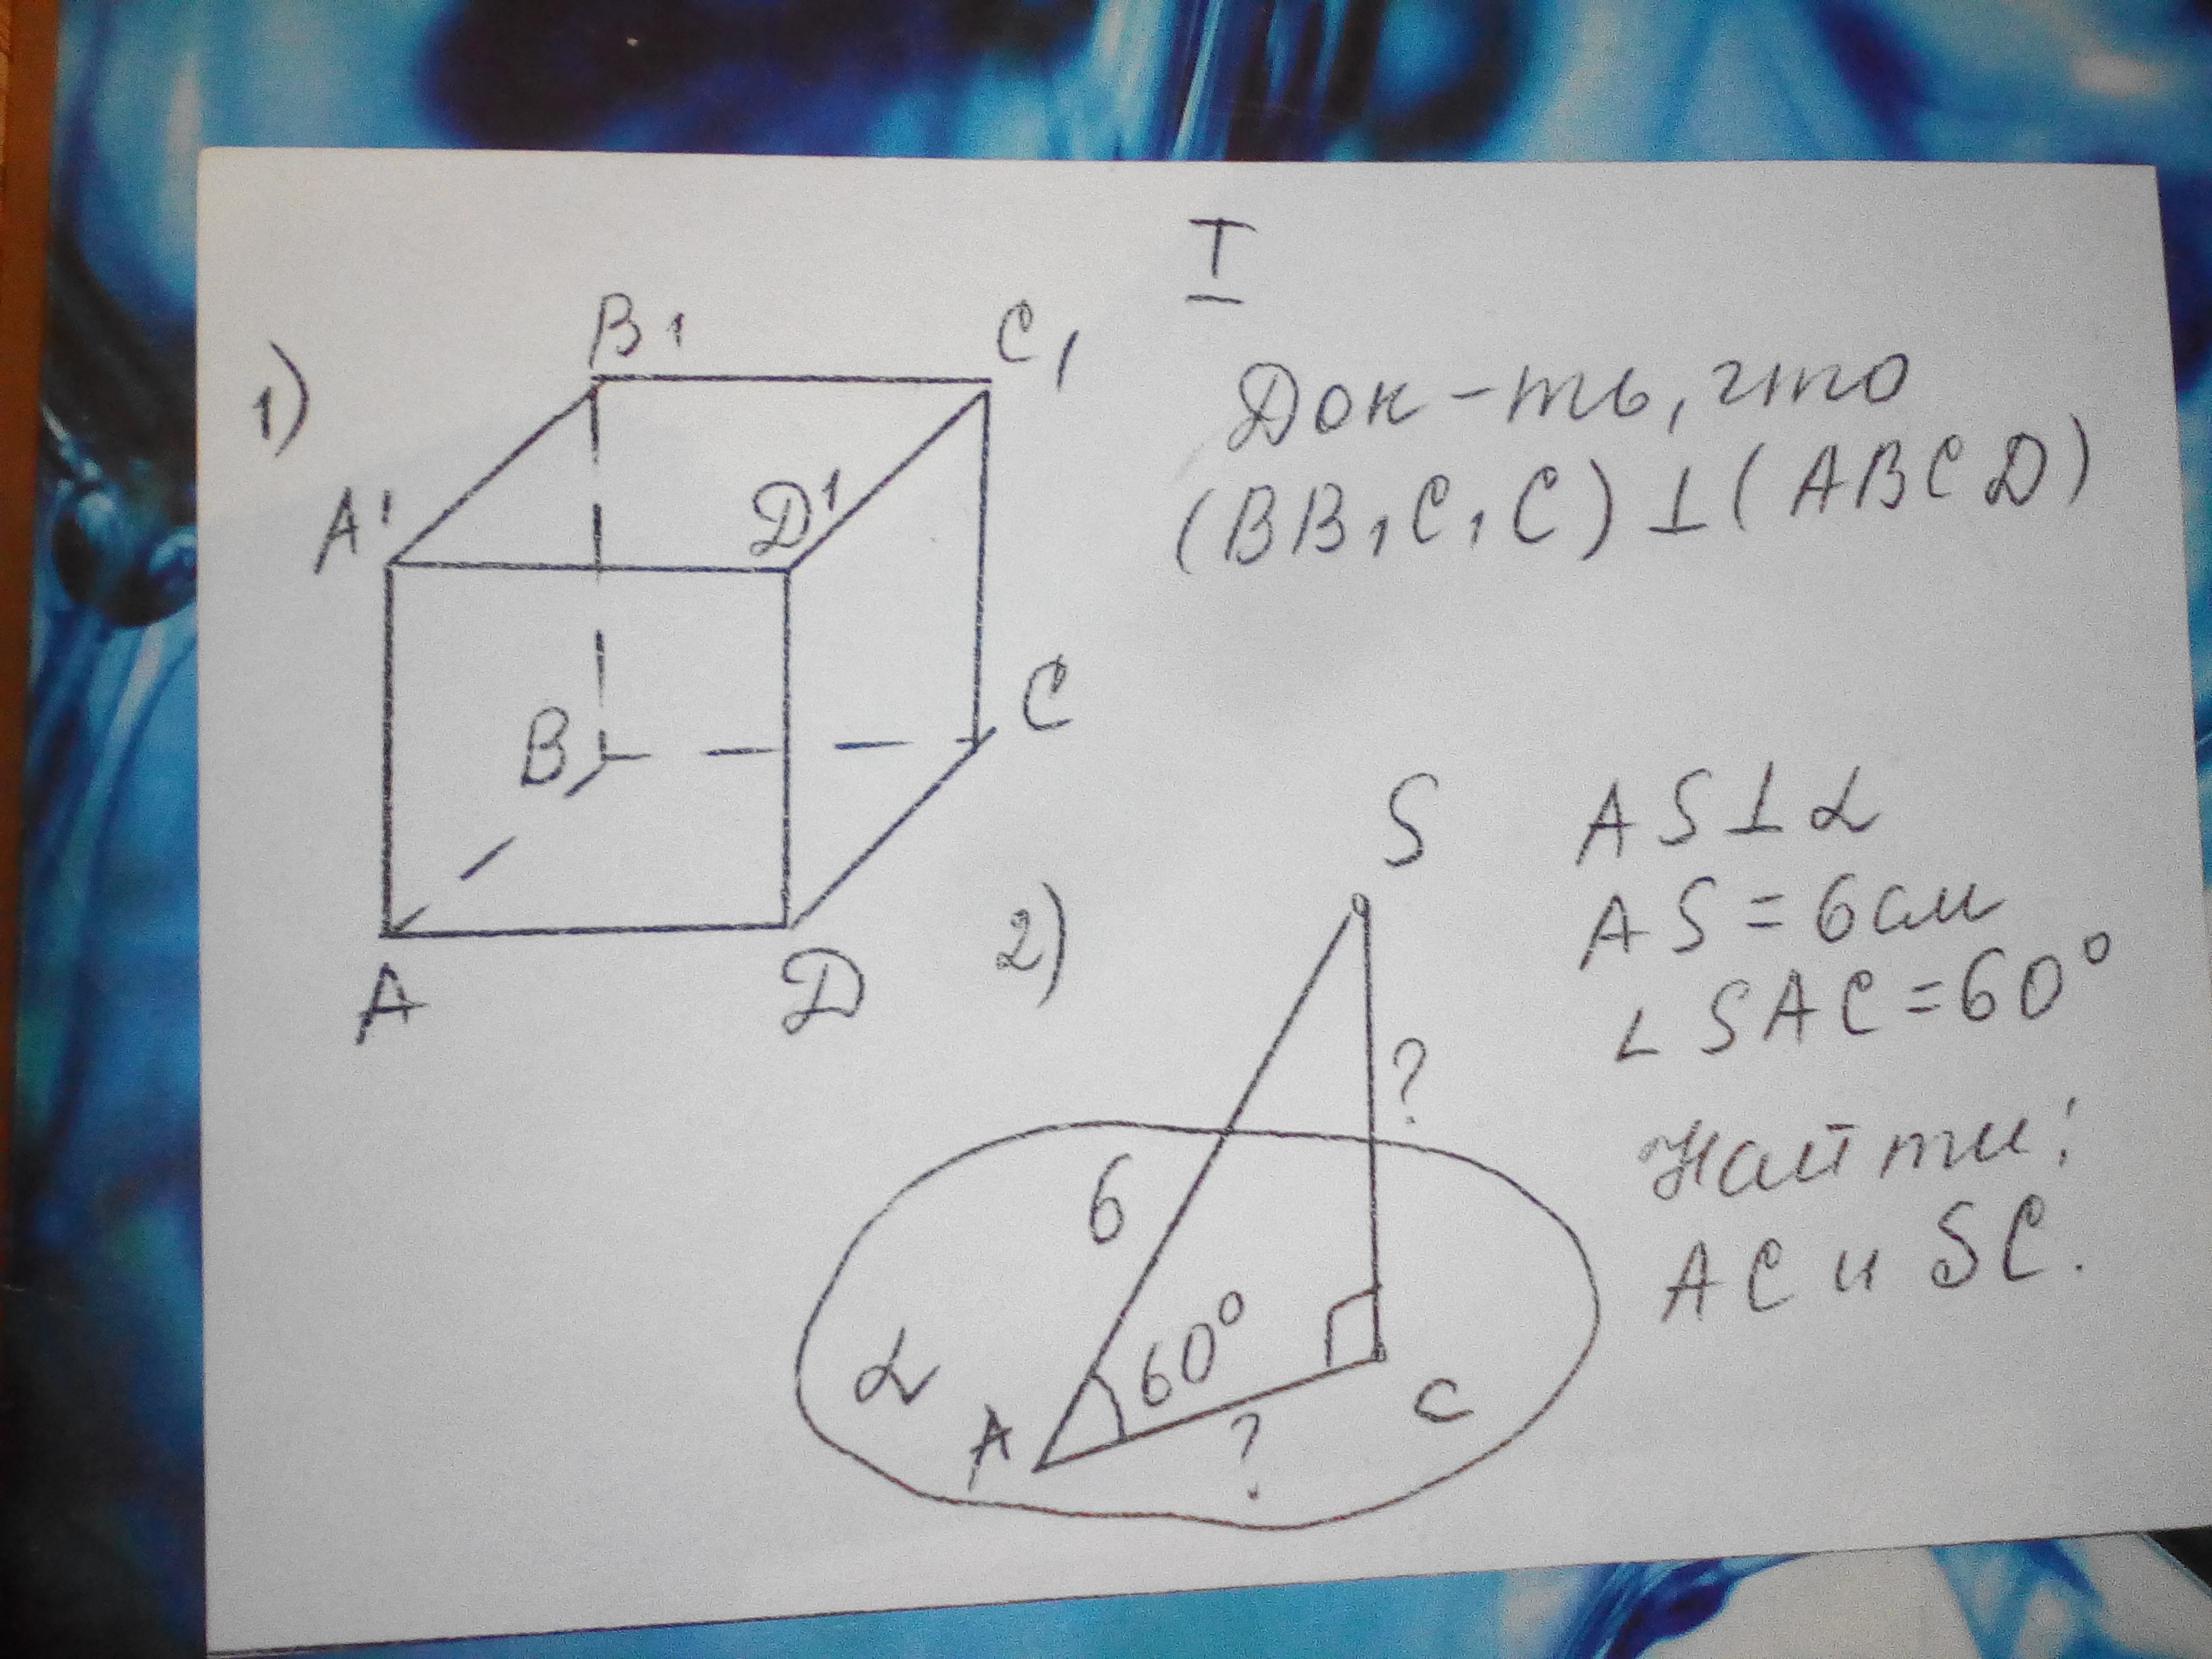 I
1)
B1
C1
A1
D1
B
C
A
D
Док-ть, что
(BB1C1C) ⊥ (ABCD)
2)
S
?
6
60°
α
A
?
C
AS ⊥ α
AS = 6 см
∠SAC = 60°
Найти:
AC и SC.